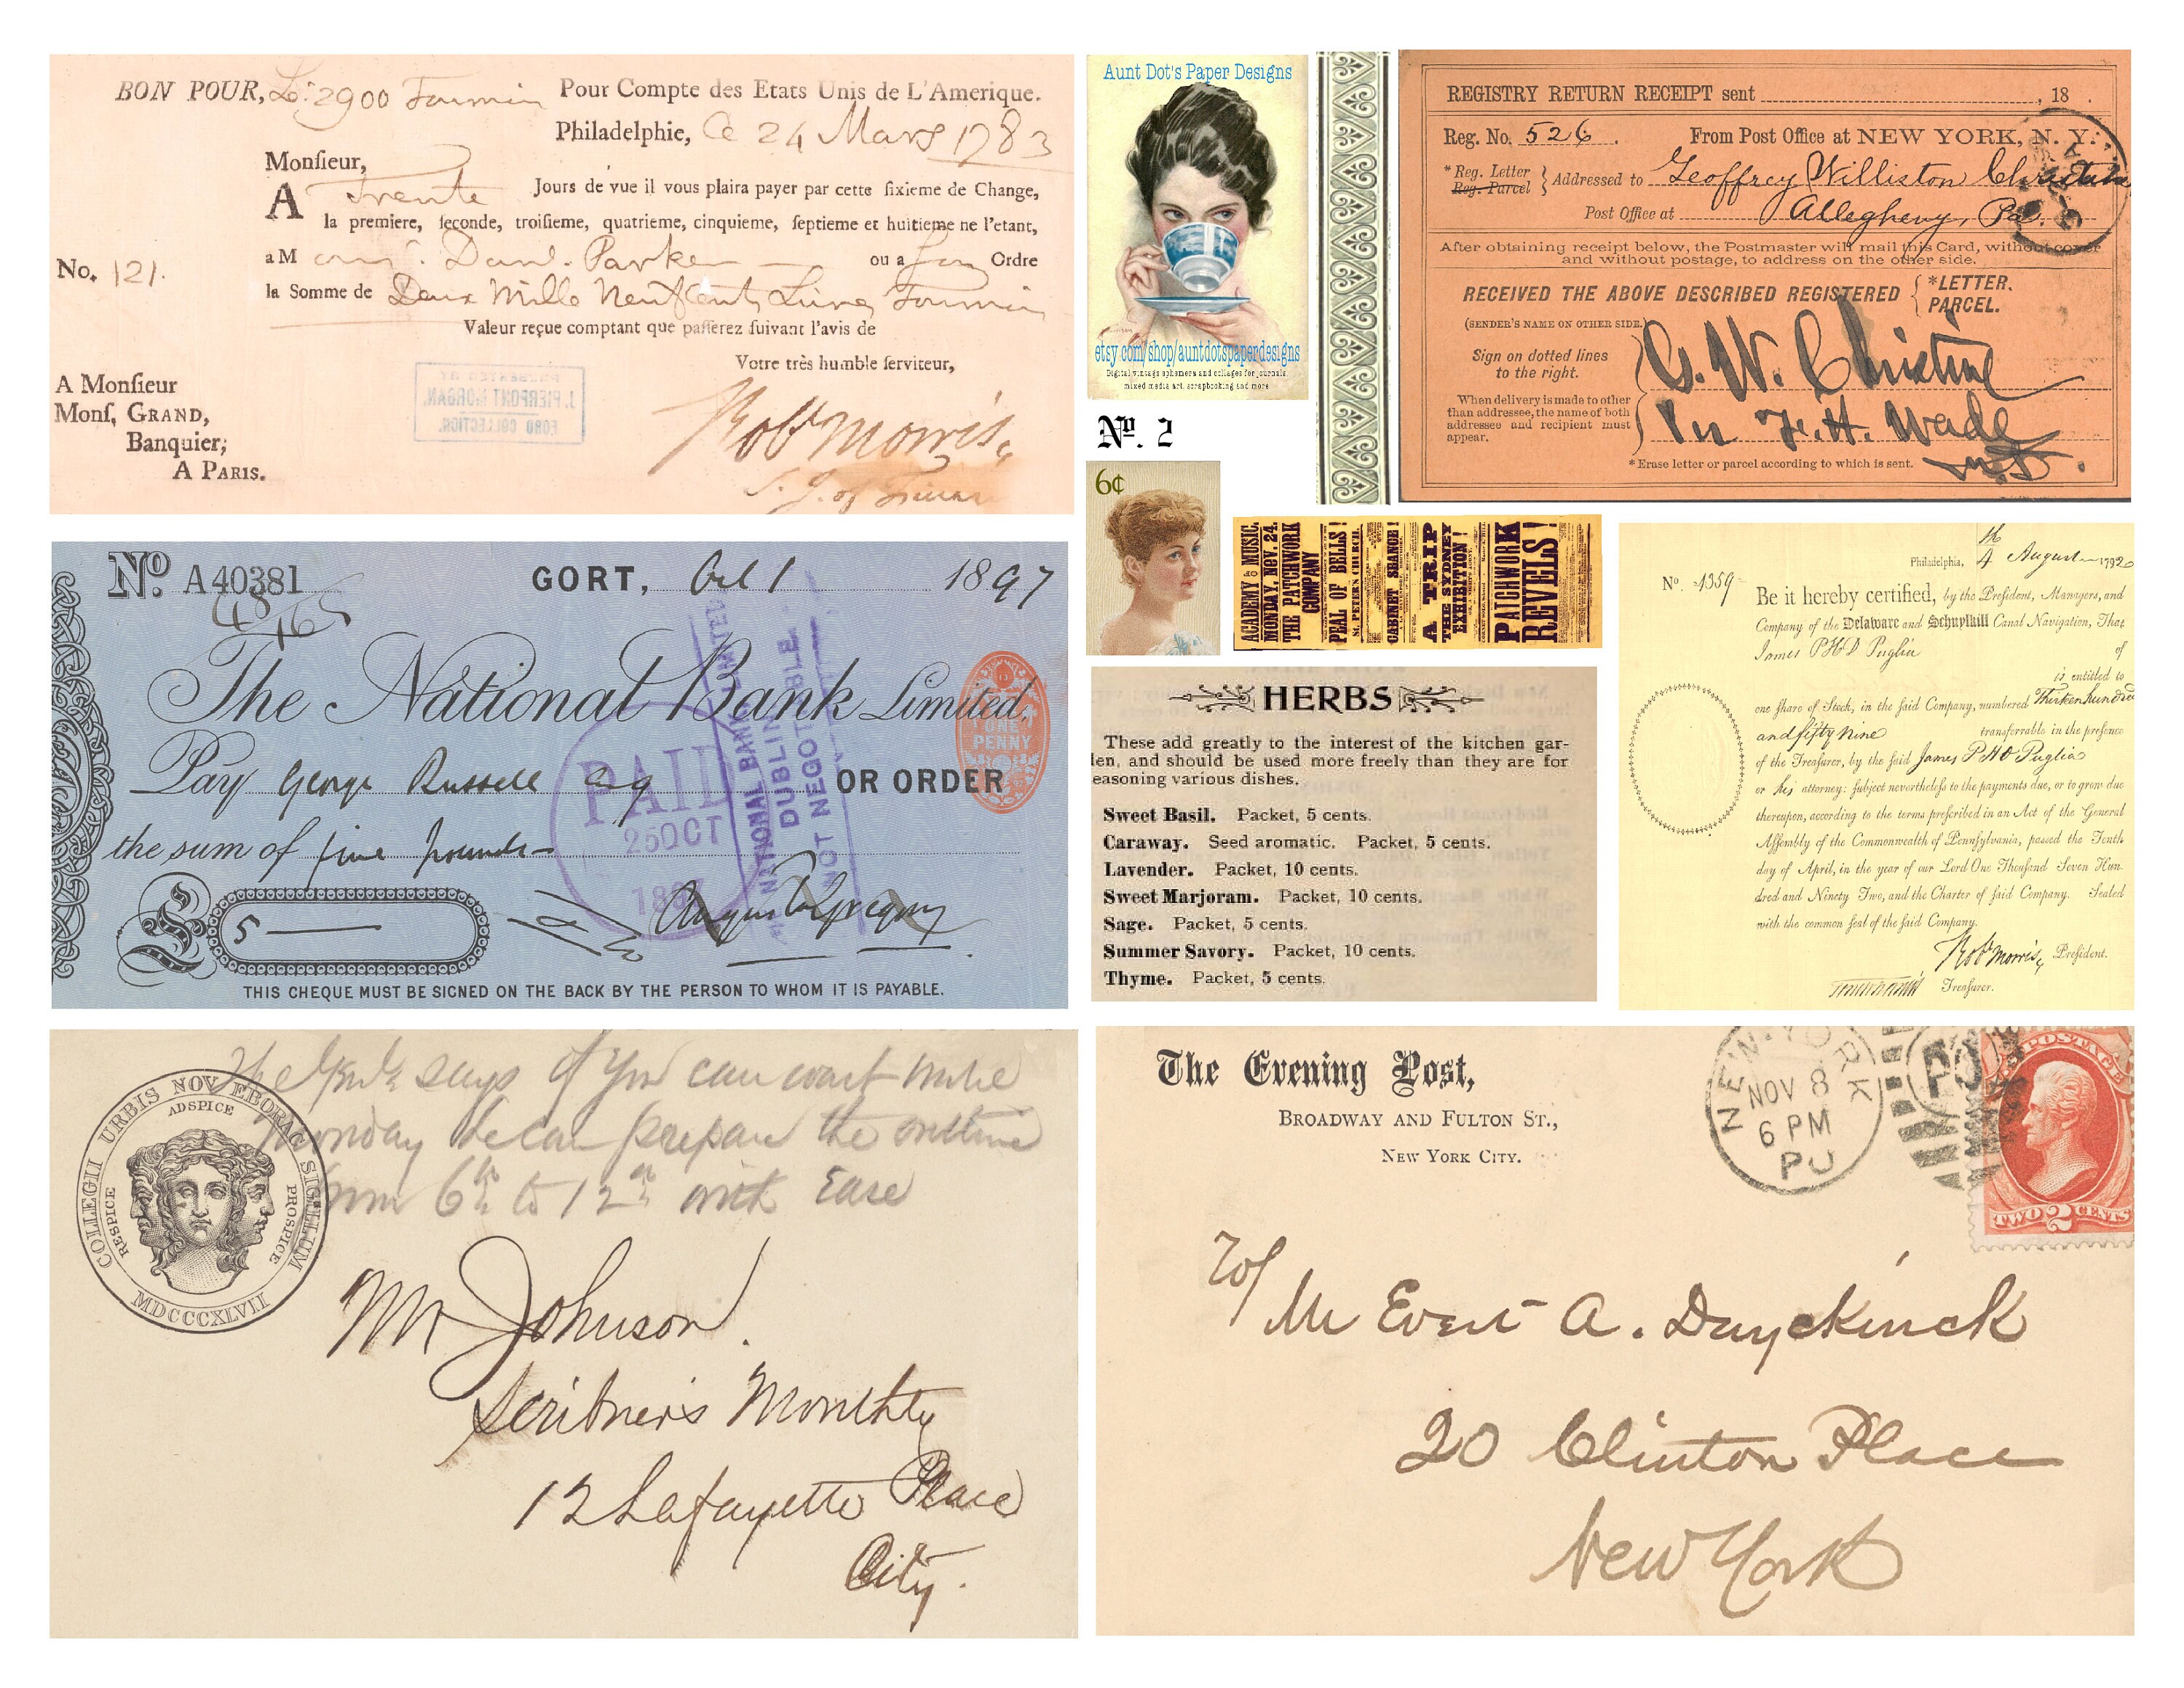 BON POUR, L: 2900 Tournois Pour Compte des Etats Unis de L'Amerique.
Philadelphie, Ce 24 Mars 1783
Monſieur,
A Trente Jours de vue il vous plaira payer par cette ſixieme de Change,
la premiere, ſeconde, troiſieme, quatrieme, cinquieme, ſeptieme et huitieme ne l'etant,
No. 121.
a M Danl. Parker ou a ſon Ordre
la Somme de Deux Mille Neuf Cent Livres Tournois
Valeur reçue comptant que paſſerez ſuivant l'avis de
Votre très humble ſerviteur,
A Monſieur
Monſ. GRAND,
Banquier,
A PARIS.
PRESENTED BY
J. PIERPONT MORGAN.
FORD COLLECTION.
Robt Morris
S. J. of Finance
Aunt Dot's Paper Designs
etsy.com/shop/auntdotspaperdesigns
Digital vintage ephemera and collages for journals,
mixed media art, scrapbooking and more
No. 2
6¢
REGISTRY RETURN RECEIPT sent , 18 .
Reg. No. 526 . From Post Office at NEW YORK, N. Y.
*Reg. Letter
Reg. Parcel } Addressed to Geoffrey Williston Christine
Post Office at Allegheny, Pa.
After obtaining receipt below, the Postmaster will mail this Card, without cover
and without postage, to address on the other side.
RECEIVED THE ABOVE DESCRIBED REGISTERED { *LETTER.
PARCEL.
(SENDER'S NAME ON OTHER SIDE.)
Sign on dotted lines
to the right.
When delivery is made to other
than addressee, the name of both
addressee and recipient must
appear.
G. W. Christine
Per F. H. Wade
*Erase letter or parcel according to which is sent.
No. A40381
GORT, Oct 1 1897
The National Bank Limited,
Pay George Russell Esq OR ORDER
the sum of five pounds
£ 5
Augusta Gregory
THIS CHEQUE MUST BE SIGNED ON THE BACK BY THE PERSON TO WHOM IT IS PAYABLE.
PAID
25 OCT
1897
NATIONAL BANK LIMITED
DUBLIN
NOT NEGOTIABLE
ONE
PENNY
ACADEMY OF MUSIC.
MONDAY, NOV. 24.
THE PATCHWORK
COMPANY
PEAL OF BELLS!
ST. PETER'S CHURCH.
CABINET SEANCE!
A TRIP
THE SYDNEY
EXHIBITION!
PATCHWORK
REVELS!
HERBS
These add greatly to the interest of the kitchen gar-
den, and should be used more freely than they are for
seasoning various dishes.
Sweet Basil. Packet, 5 cents.
Caraway. Seed aromatic. Packet, 5 cents.
Lavender. Packet, 10 cents.
Sweet Marjoram. Packet, 10 cents.
Sage. Packet, 5 cents.
Summer Savory. Packet, 10 cents.
Thyme. Packet, 5 cents.
Philadelphia, 4th August 1792
No. 1359
Be it hereby certified, by the Preſident, Managers, and
Company of the Delaware and Schuylkill Canal Navigation, That
James P H D Puglia of
is entitled to
one ſhare of Stock, in the ſaid Company, numbered Thirteen hundred
and fifty nine transferrable in the preſence
of the Treaſurer, by the ſaid James P H D Puglia
or his attorney: ſubject nevertheleſs to the payments due, or to grow due
thereupon, according to the terms preſcribed in an Act of the General
Aſſembly of the Commonwealth of Pennſylvania, paſſed the Tenth
day of April, in the year of our Lord One Thouſand Seven Hun-
dred and Ninety Two, and the Charter of ſaid Company. Sealed
with the common ſeal of the ſaid Company.
Robt Morris, Preſident.
Treaſurer.
COLLEGII URBIS NOV EBORAC SIGILLUM
ADSPICE
RESPICE
PROSPICE
MDCCCXLVII
says if you can wait until
Monday he can prepare the outline
from 6th to 12th with Ease
Mr Johnson.
Scribner's Monthly
12 Lafayette Place
City.
The Evening Post,
BROADWAY AND FULTON ST.,
NEW YORK CITY.
NEW YORK
NOV 8
6 PM
PO
POSTAGE
TWO 2 CENTS
To/
Mr Evert A. Duyckinck
20 Clinton Place
New York